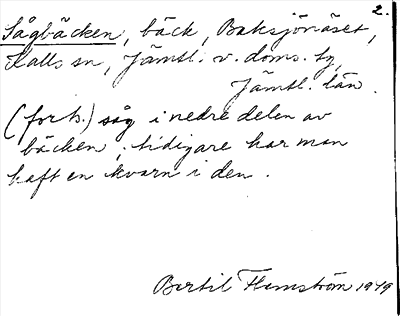 2.
Sågbäcken, bäck, Baksjönäset,
Kalls sn, Jämtl. v. doms. hg,
Jämtl. län.
(forts.) såg i nedre delen av
bäcken, tidigare har man
haft en kvarn i den.
Bertil Flemström 1979